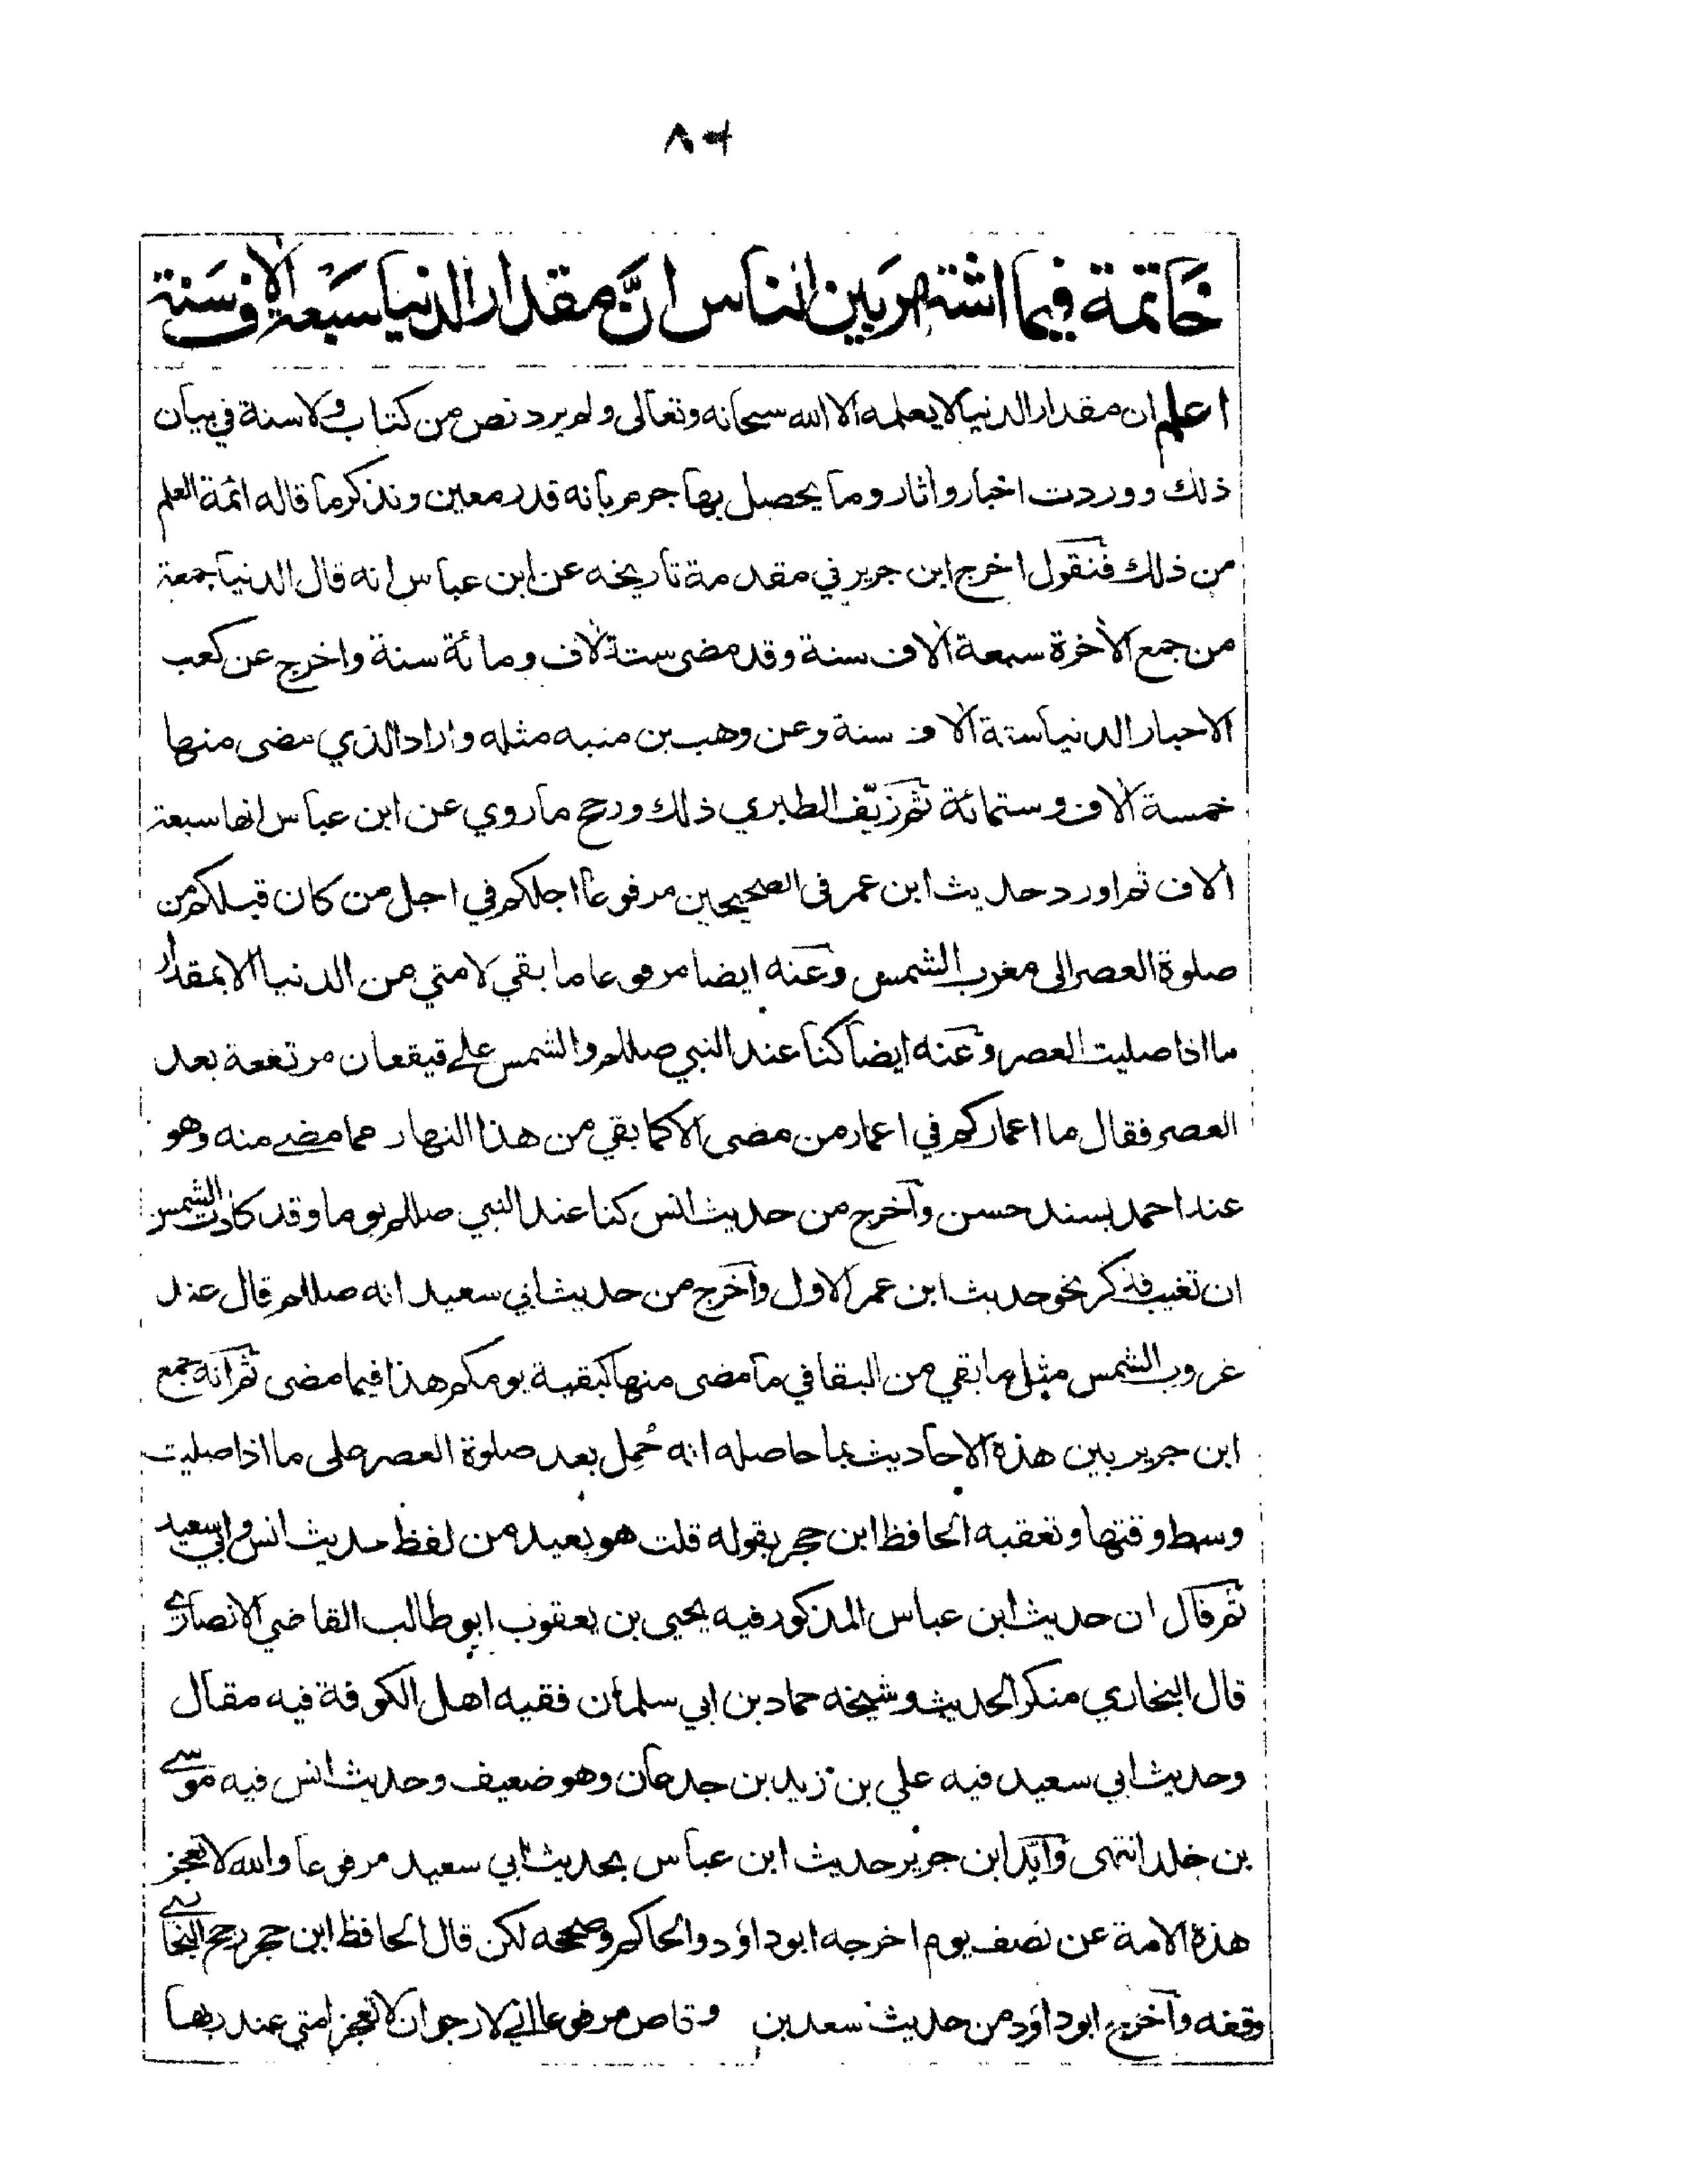 خاتمة فيما اشتهر بين الناس انَّ مقدار الدنيا سبعة الاف سنة
اعلم ان مقدار الدنيا لا يعلمه الا الله سبحانه وتعالى ولم يرد نص من كتاب ولا سنة في بيان
ذلك ووردت اخبار واثار وما يحصل بها جرم بانه قدر معين ونذكر ما قاله ائمة العلم
من ذلك فنقول اخرج ابن جرير في مقدمة تاريخه عن ابن عباس انه قال الدنيا جمعة
من جمع الاخرة سبعة الاف سنة وقد مضى ستة الاف ومائة سنة واخرج عن كعب
الاحبار الدنيا ستة الاف سنة وعن وهب بن منبه مثله واراد الذي مضى منها
خمسة الاف وستمائة ثم زيّف الطبري ذلك ورجح ما روي عن ابن عباس انها سبعة
الاف ثم اورد حديث ابن عمر في الصحيحين مرفوعا اجلكم في اجل من كان قبلكم من
صلوة العصر الى مغرب الشمس وعنه ايضا مرفوعا ما بقي لامتي من الدنيا الا بمقدار
ما اذا صليت العصر وعنه ايضا كنا عند النبي صللم والشمس على قيقعان مرتفعة بعد
العصر فقال ما اعماركم في اعمار من مضى الا كما بقي من هذا النهار مما مضى منه وهو
عند احمد بسند حسن واخرج من حديث انس كنا عند النبي صللم يوما وقد كادت الشمس
ان تغيب فذكر نحو حديث ابن عمر الاول واخرج من حديث ابي سعيد انه صللم قال عند
غروب الشمس مثل ما بقي من البقا في ما مضى منها كبقية يومكم هذا فيما مضى ثم انه جمع
ابن جرير بين هذة الاحاديث بما حاصله انه حُمِل بعد صلوة العصر على ما اذا صليت
وسط وقتها وتعقبه الحافظ ابن حجر بقوله قلت هو بعيد من لفظ حديث انس وابي سعيد
ثم قال ان حديث ابن عباس المذكور فيه يحيى بن يعقوب ابو طالب القاضي الانصاري
قال البخاري منكر الحديث وشيخه حماد بن ابي سلمان فقيه اهل الكوفة فيه مقال
وحديث ابي سعيد فيه علي بن زيد بن جدعان وهو ضعيف وحديث انس فيه موسى
بن خلد انتهى وآيّد ابن جرير حديث ابن عباس بحديث ابي سعيد مرفوعا والله لا تعجز
هذة الامة عن نصف يوم اخرجه ابو داؤد والحاكم وصححه لكن قال الحافظ ابن حجر رجح البخاري
وقفه وآخرج ابو داؤد من حديث سعد بن وقاص مرفوعا اني لارجو ان لا تعجز امتي عند ربها